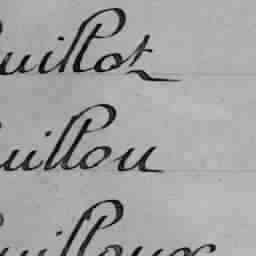 uillot
uillou
uilloux